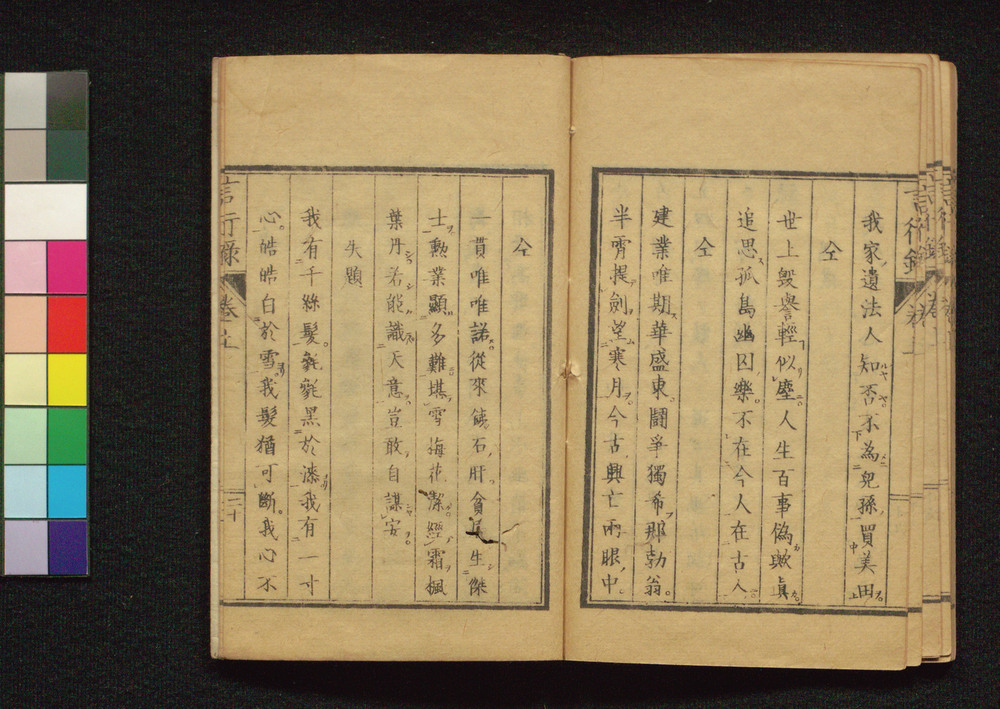 我家遺法人知否不為兒孫買美田
仝
世上毀譽輕似塵人生百事偽歟眞
追思孤島幽囚樂不在今人在古人
仝
建業唯期華盛東闘爭獨希那勃翁
半霄提劍望寒月今古興亡兩眼中
仝
一貫唯唯諾從來鐵石肝貧 生傑
士勲業顯多難堪雪梅花潔經霜楓
葉丹若能識天意豈敢自謀安
失題
我有千絲髮毿毿黒於漆我有一寸
心皓皓白於雪我髮猶可斷我心不
言行録